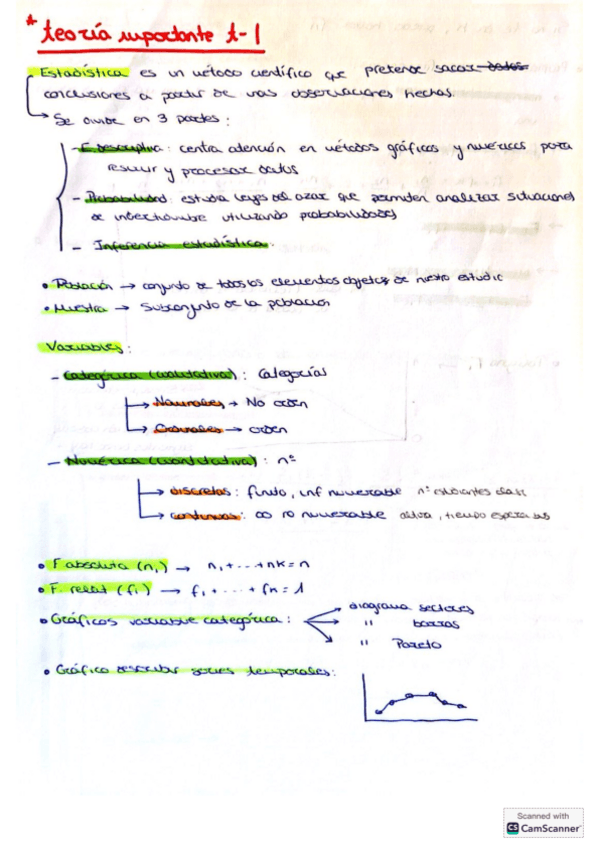 * teoría importante t-1
Estadística es un método científico que pretende sacar datos
conclusiones a partir de unas observaciones hechas.
Se divide en 3 partes:
- E descriptiva: centra atención en métodos gráficos y numéricos para
resumir y procesar datos
- Probabilidad: estudia leyes del azar que permiten analizar situaciones
de incertidumbre utilizando probabilidades
- Inferencia estadística.
• Población → conjunto de todos los elementos objetos de nuestro estudio
• Muestra → Subconjunto de la población
Variables:
- Categórica (cualitativa): Categorías
→ Nominales → No orden
→ Ordinales → orden
- Numérica (cuantitativa): nº
→ discretas: finito, inf numerable nº estudiantes clase
→ continuas: ∞ no numerable altura, tiempo espera bus
• F absoluta (ni) → n1 + ... + nk = n
• F. relat (fi) → f1 + ... + fn = 1
• Gráficos variable categórica: → diagrama sectores
→ " barras
→ " Pareto
• Gráfico describir series temporales:
Scanned with
CS CamScanner